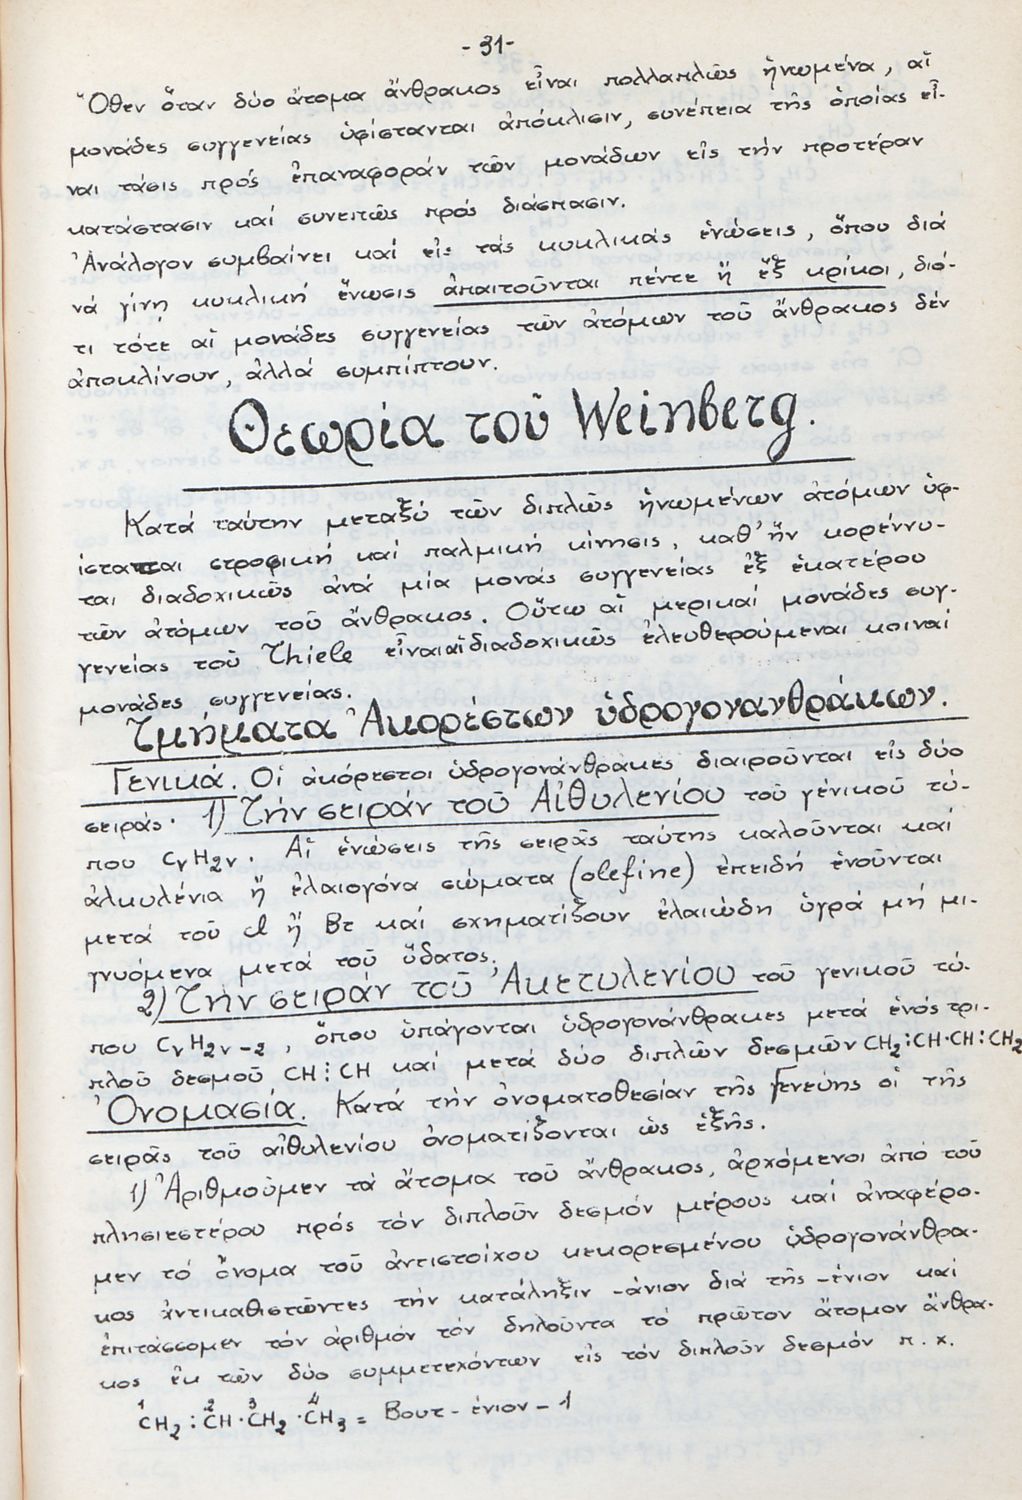 -31-
Ὅθεν ὅταν δύο ἄτομα ἄνθρακος εἶναι πολλαπλῶς ἡνωμένα, αἱ
μονάδες συγγενείας ὑφίστανται ἀπόκλισιν, συνέπεια τῆς ὁποίας εἶ-
ναι τάσις πρός ἐπαναφοράν τῶν μονάδων εἰς τήν προτέραν
κατάστασιν καί συνεπῶς πρός διάσπασιν.
Ἀνάλογον συμβαίνει καί εἰς τάς κυκλικάς ἑνώσεις, ὅπου διά
νά γίνῃ κυκλική ἕνωσις ἀπαιτοῦνται πέντε ἤ ἕξ κρίκοι, διό-
τι τότε αἱ μονάδες συγγενείας τῶν ἀτόμων τοῦ ἄνθρακος δέν
ἀποκλίνουν, ἀλλά συμπίπτουν.
Θεωρία τοῦ Weinberg.
Κατά ταύτην μεταξύ τῶν διπλῶς ἡνωμένων ἀτόμων ὑφ-
ίσταται στροφική καί παλμική κίνησις, καθ' ἥν κορέννυ-
ται διαδοχικῶς ἀνά μία μονάς συγγενείας ἐξ ἑκατέρου
τῶν ἀτόμων τοῦ ἄνθρακος. Οὕτω αἱ μερικαί μονάδες συγ-
γενείας τοῦ Thiele εἶναι αἱ διαδοχικῶς ἐλευθερούμεναι κοιναί
μονάδες συγγενείας.
Τμήματα Ἀκορέστων ὑδρογονανθράκων.
Γενικά. Οἱ ἀκόρεστοι ὑδρογονάνθρακες διαιροῦνται εἰς δύο
σειράς. 1) Τήν σειράν τοῦ Αἰθυλενίου τοῦ γενικοῦ τύ-
που CνH2ν. Αἱ ἑνώσεις τῆς σειρᾶς ταύτης καλοῦνται καί
ἀλκυλένια ἤ ἐλαιογόνα σώματα (olefine) ἐπειδή ἑνοῦνται
μετά τοῦ Cl ἤ Br καί σχηματίζουν ἐλαιώδη ὑγρά μή μι-
γνυόμενα μετά τοῦ ὕδατος.
2) Τήν σειράν τοῦ Ἀκετυλενίου τοῦ γενικοῦ τύ-
που CνH2ν-2, ὅπου ὑπάγονται ὑδρογονάνθρακες μετά ἑνός τρι-
πλοῦ δεσμοῦ CH⋮CH καί μετά δύο διπλῶν δεσμῶν CH2:CH·CH:CH2
Ὀνομασία. Κατά τήν ὀνοματοθεσίαν τῆς Γενεύης οἱ τῆς
σειρᾶς τοῦ αἰθυλενίου ὀνοματίζονται ὡς ἑξῆς.
1) Ἀριθμοῦμεν τά ἄτομα τοῦ ἄνθρακος, ἀρχόμενοι ἀπό τοῦ
πλησιεστέρου πρός τόν διπλοῦν δεσμόν μέρους καί ἀναφέρο-
μεν τό ὄνομα τοῦ ἀντιστοίχου κεκορεσμένου ὑδρογονάνθρα-
κος ἀντικαθιστῶντες τήν κατάληξιν -άνιον διά τῆς -ένιον καί
ἐπιτάσσομεν τόν ἀριθμόν τόν δηλοῦντα τό πρῶτον ἄτομον ἄνθρα-
κος ἐκ τῶν δύο συμμετεχόντων εἰς τόν διπλοῦν δεσμόν π.χ.
1 2 3 4
CH2:CH·CH2·CH3 = Βουτ-ένιον-1